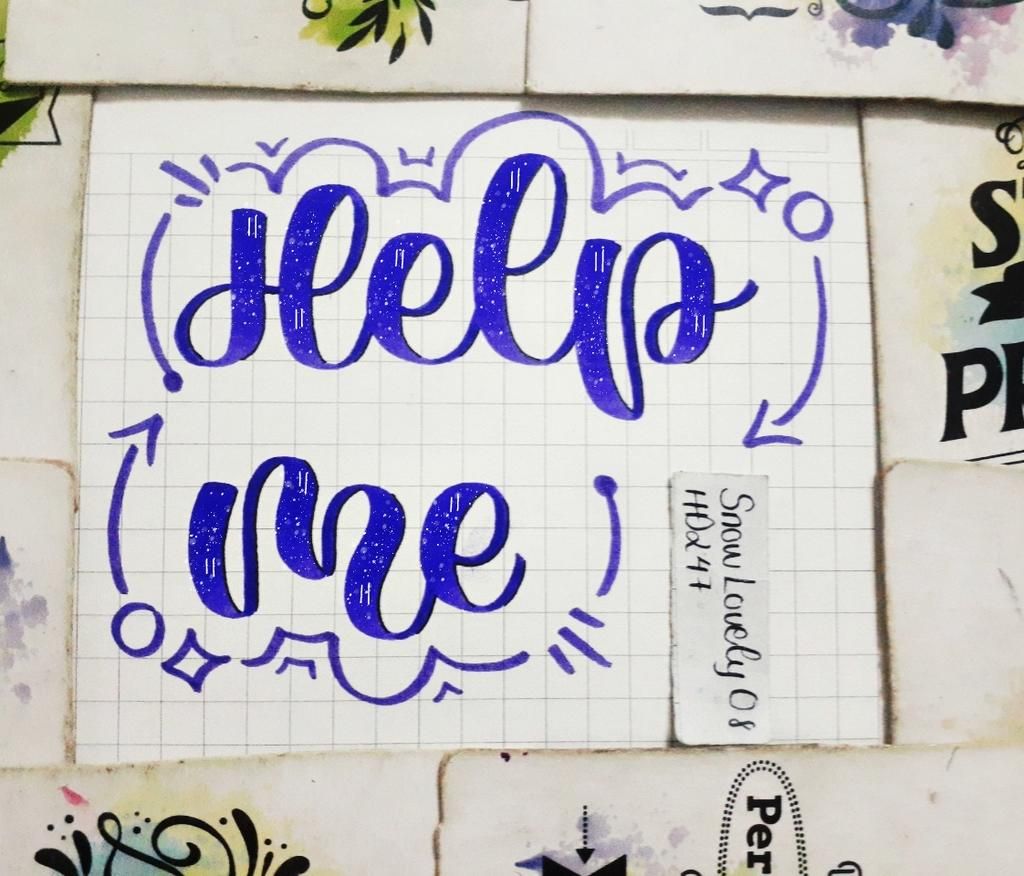 Help
me
Snow Lovely 08
HD247
Per